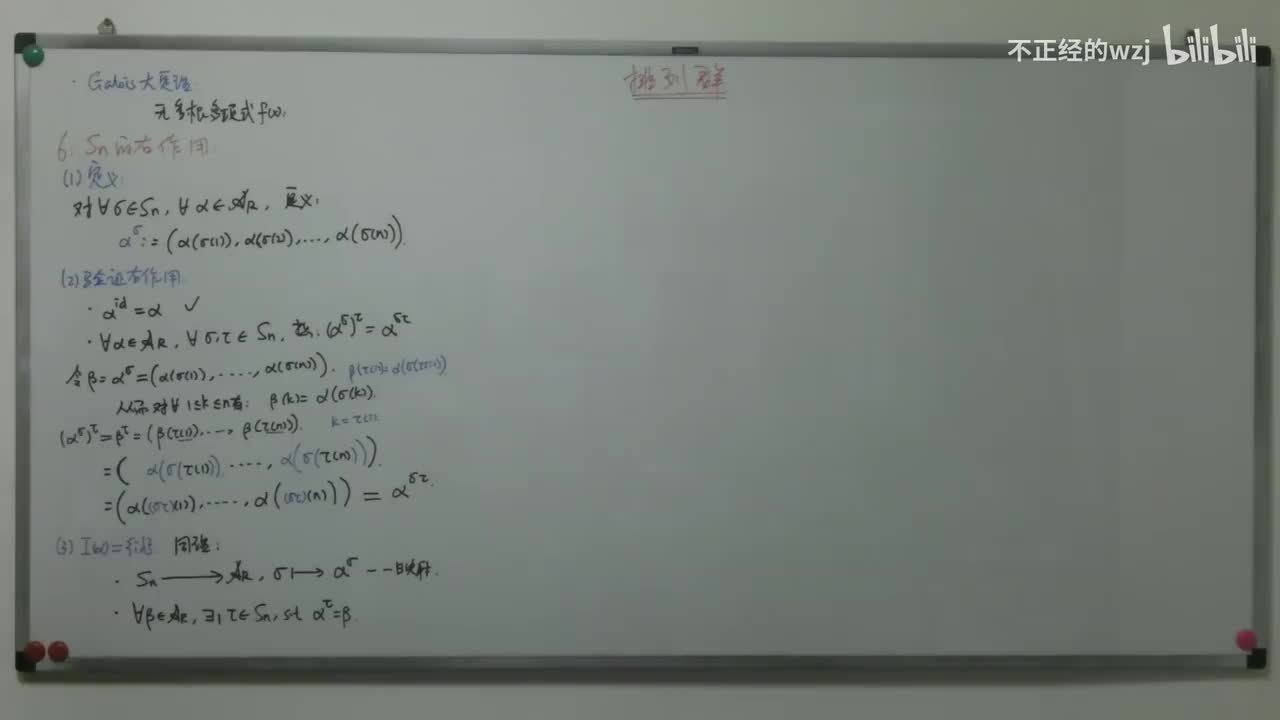 不正经的wzj bilibili
排列群
· Galois大定理
无重根多项式f(x),
6. Sn的右作用
(1)定义:
对∀σ∈Sn, ∀α∈A_R, 定义:
α^σ := (α(σ(1)), α(σ(2)), ..., α(σ(n))).
(2)验证右作用
· α^id = α ✓
· ∀α∈A_R, ∀σ,τ∈Sn, 有: (α^σ)^τ = α^στ
令β=α^σ=(α(σ(1)), ...., α(σ(n))). β(τ(1))=α(σ(τ(1)))
从而对∀ 1≤k≤n有: β(k)=α(σ(k)).
(α^σ)^τ=β^τ=(β(τ(1)), ..., β(τ(n))). k=τ(1).
=( α(σ(τ(1))) ...., α(σ(τ(n)))).
=(α((στ)(1)), ...., α((στ)(n))) = α^στ.
(3) I(α)={id} 同理:
· Sn ⟶ A_R, σ ⟼ α^σ 一一映射.
· ∀β∈A_R, ∃₁ τ∈Sn, s.t α^τ=β.